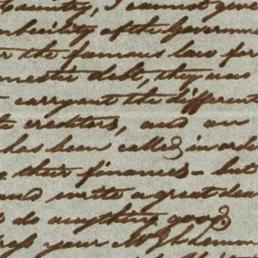 Country, I cannot give
of the Governm
the famous law for
mestic debt, they was
carry out the different
creditors, and an
has been called in orde
their finances - but
and write a great dea
do anything good
your